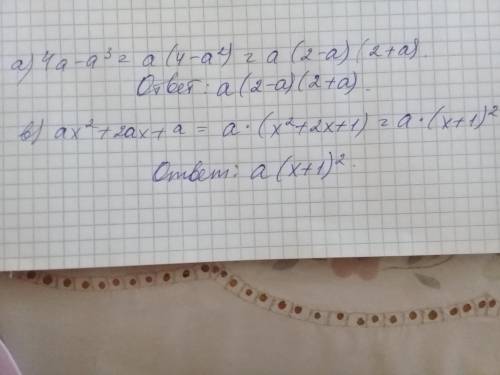 а) 4a-a³ = a(4-a²) = a(2-a)(2+a).
Ответ: a(2-a)(2+a).
в) ax²+2ax+a = a·(x²+2x+1) = a·(x+1)²
Ответ: a(x+1)².